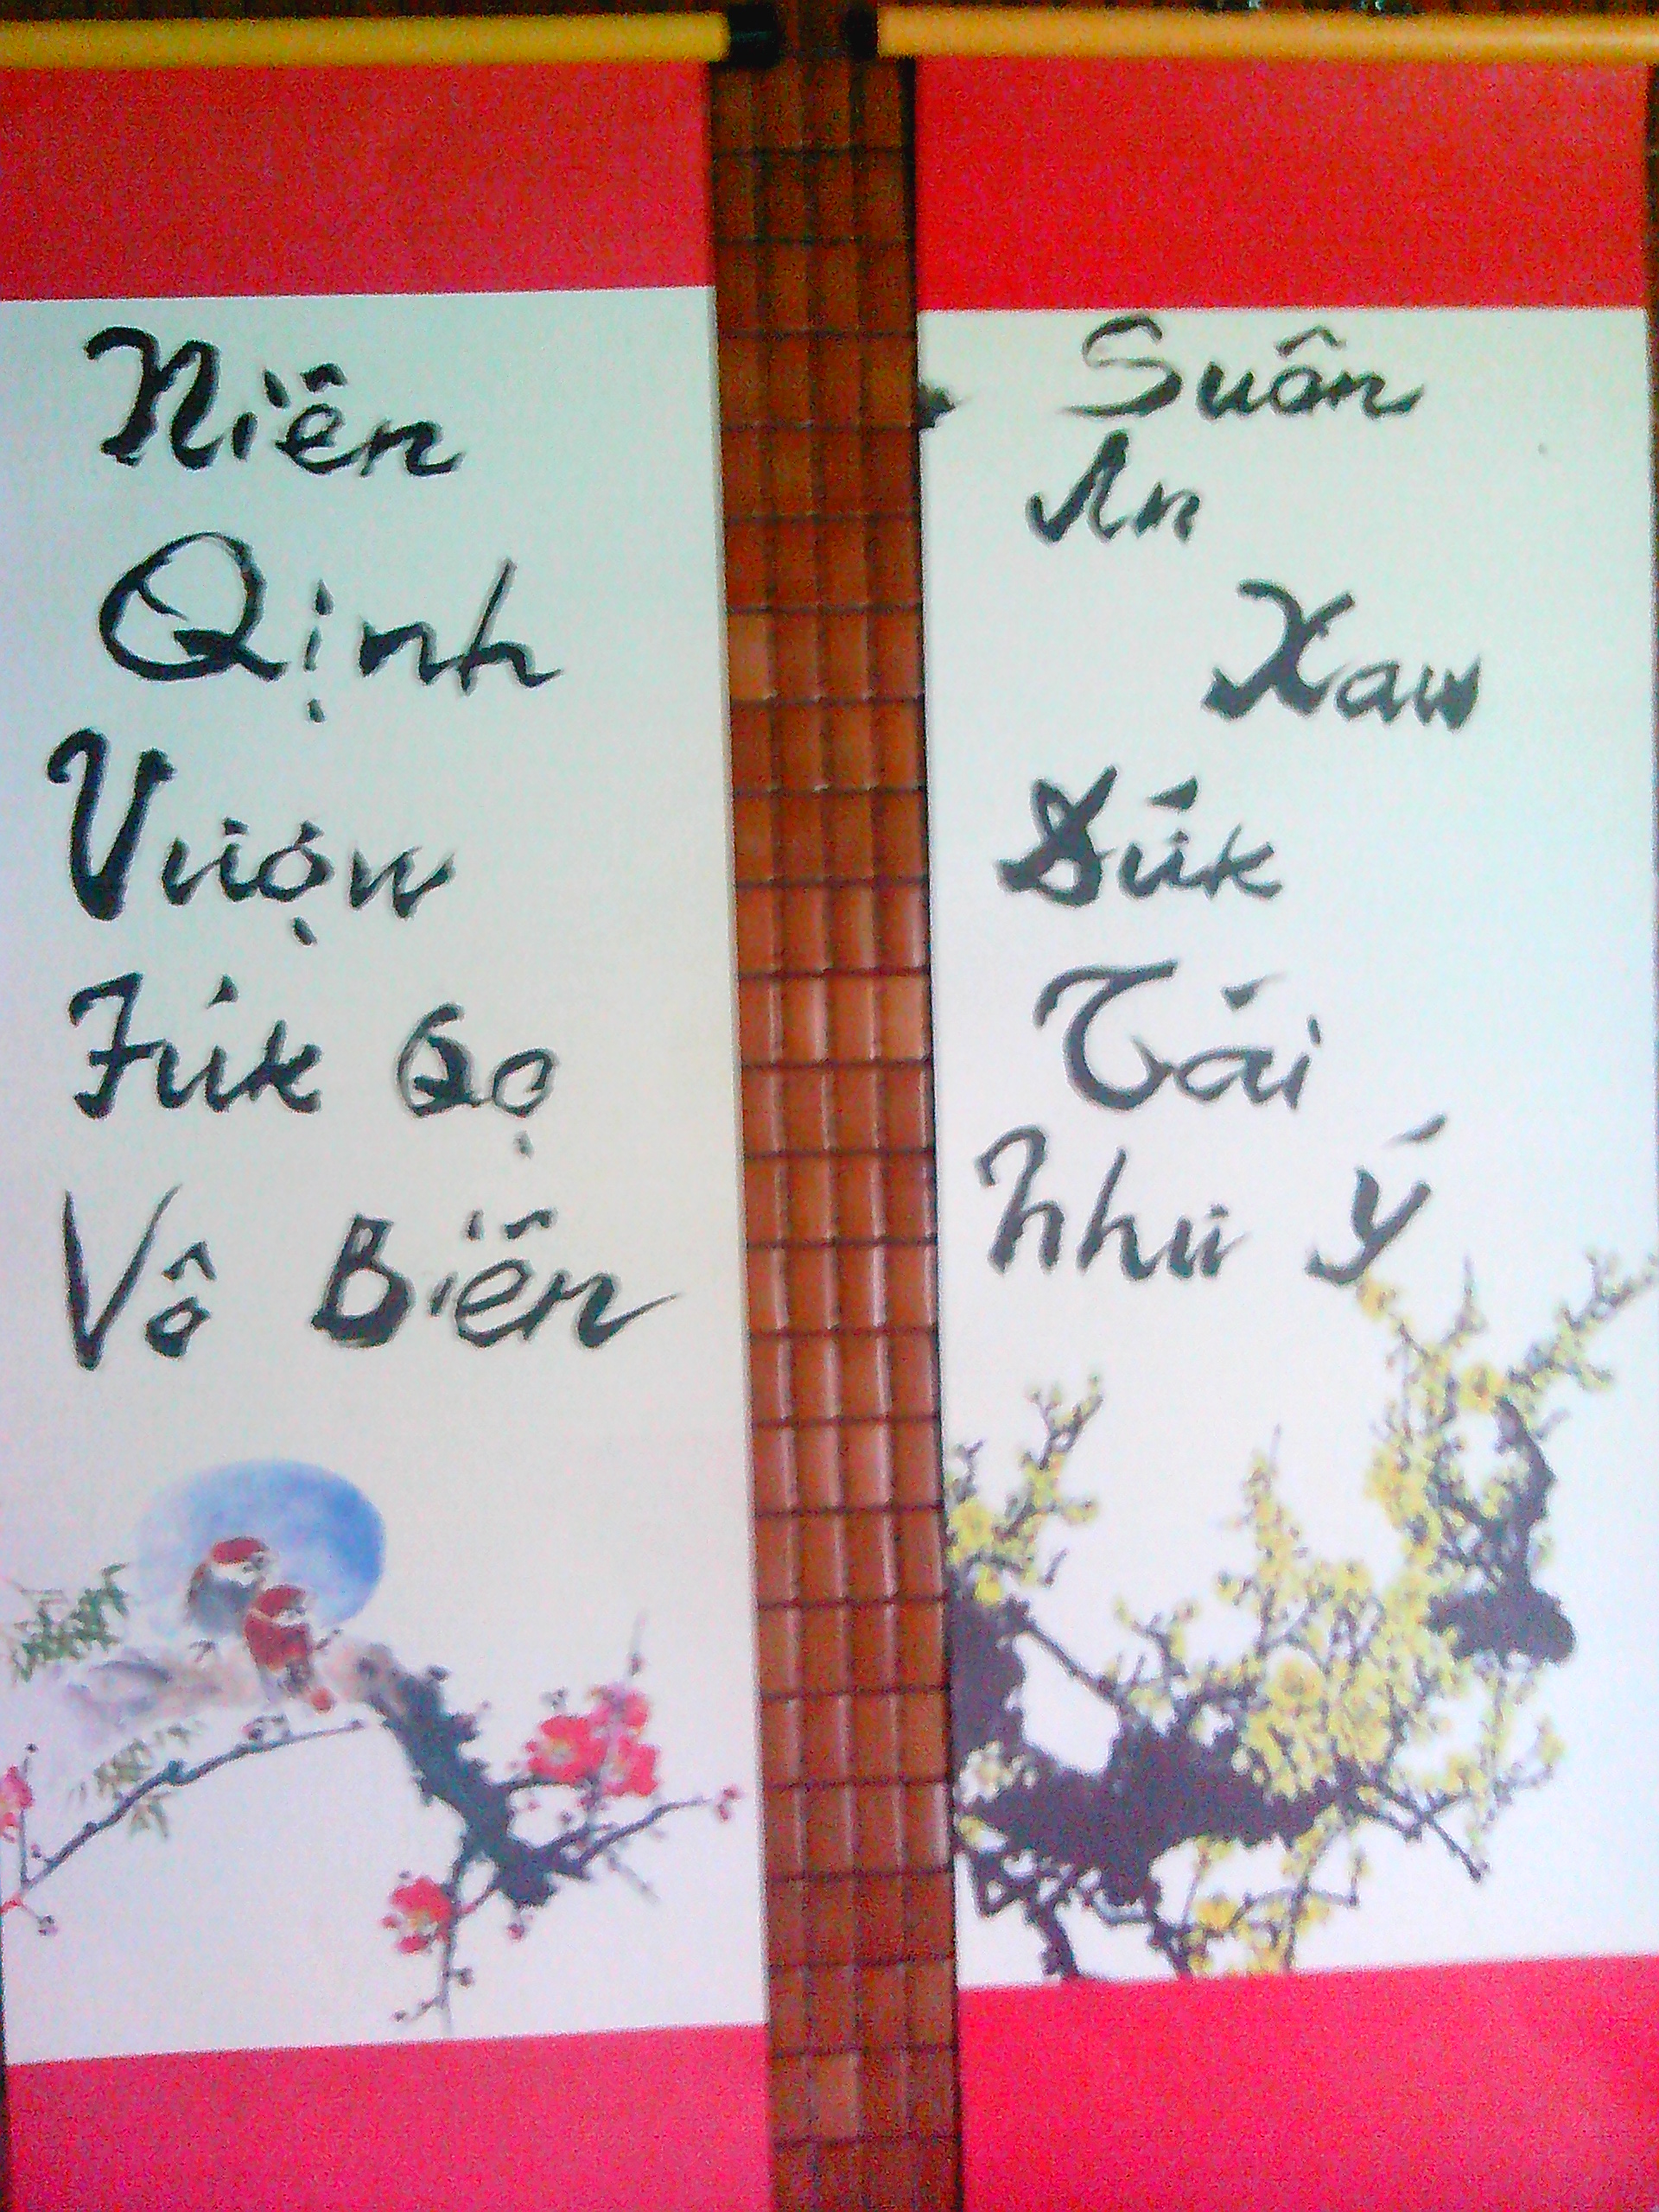 Niên
Qịnh
Vượw
Fúk Qọ
Vô Biên
Suân
An
Xaw
Súk
Tái
Như Ý